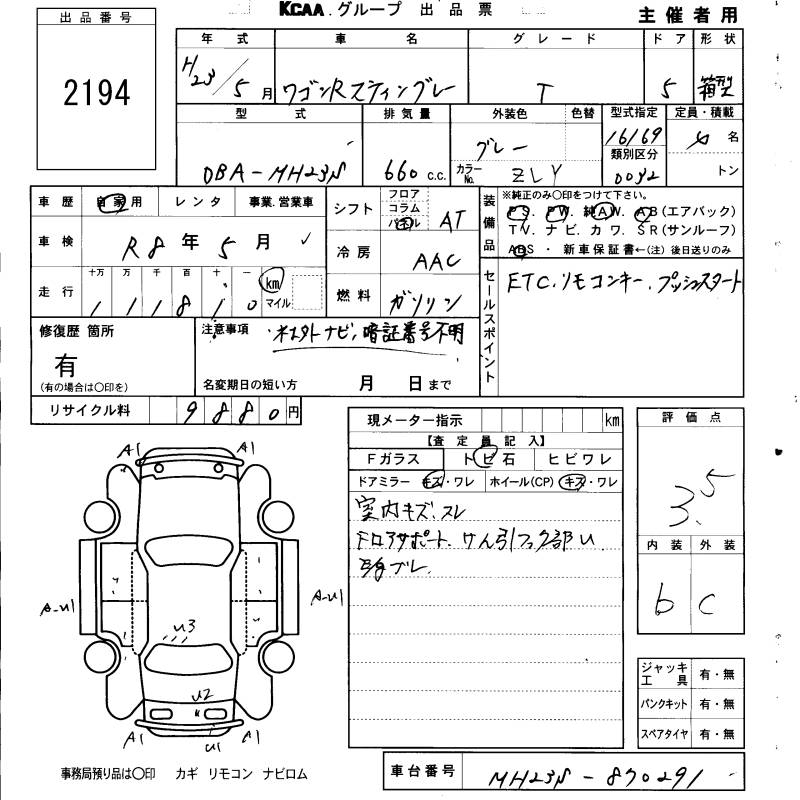 KCAA.グループ 出品票
主催者用
出品番号
2194
年式 車名 グレード ドア 形状
H23/5月 ワゴンRスティングレー T 5 箱型
型式 排気量 外装色 色替 型式指定 定員・積載
DBA-MH23S 660 c.c. グレー カラーNo. ZLY 16169 4名
類別区分 0032 トン
車歴 自家用 レンタ 事業.営業車
シフト フロア コラム パネル AT
装備品 ※純正のみ○印をつけて下さい。
PS. PW. 純AW. AB(エアバック)
TV. ナビ. カワ. SR(サンルーフ)
ABS・新車保証書←(注)後日送りのみ
車検 R8年5月
冷房 AAC
走行 十万 万 千 百 十 一 km マイル
111810
燃料 ガソリン
セールスポイント ETC.リモコンキー.プッシュスタート
修復歴 箇所 有
(有の場合は○印を)
注意事項 社外ナビ,暗証番号不明
名変期日の短い方 月 日まで
リサイクル料 9880円
現メーター指示 km
評価点
3.5
【査定員記入】
Fガラス トビ石 ヒビワレ
ドアミラー キズ・ワレ ホイール(CP) キズ・ワレ
室内キズ.スレ
Fロアサポート.けん引フック部U
内装 外装
b C
A1 A1
A-U1 A-U1
U3
U2
A1 U1 A1
ジャッキ工具 有・無
パンクキット 有・無
スペアタイヤ 有・無
事務局預り品は○印 カギ リモコン ナビロム
車台番号 MH23S-870291